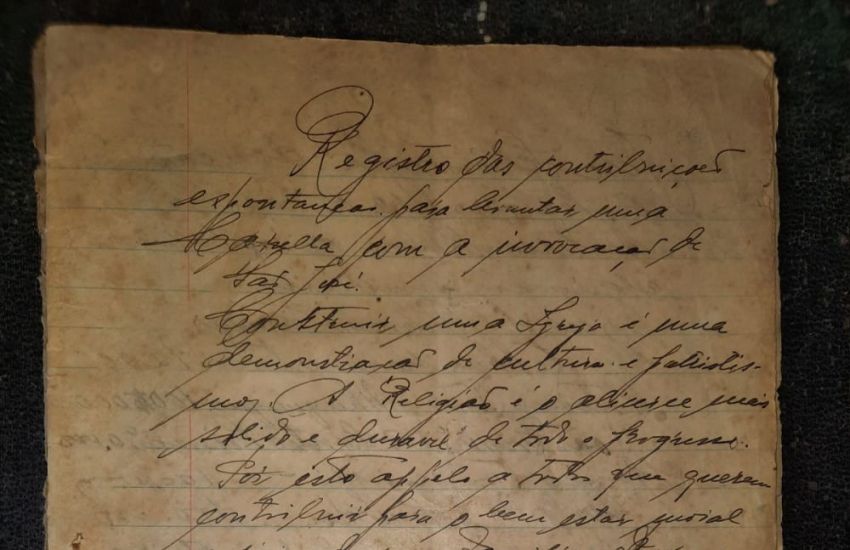 Registro das contribuiçoes
espontaneas para levantar uma
Capella com a invocação de
São José.
Construir uma Igreja é uma
demonstração de cultura e patriotis-
mo. A Religião é o alicerce mais
solido e duravel de todo o progresso.
Por isto appelo a todos que querem
contribuir para o bem estar moral